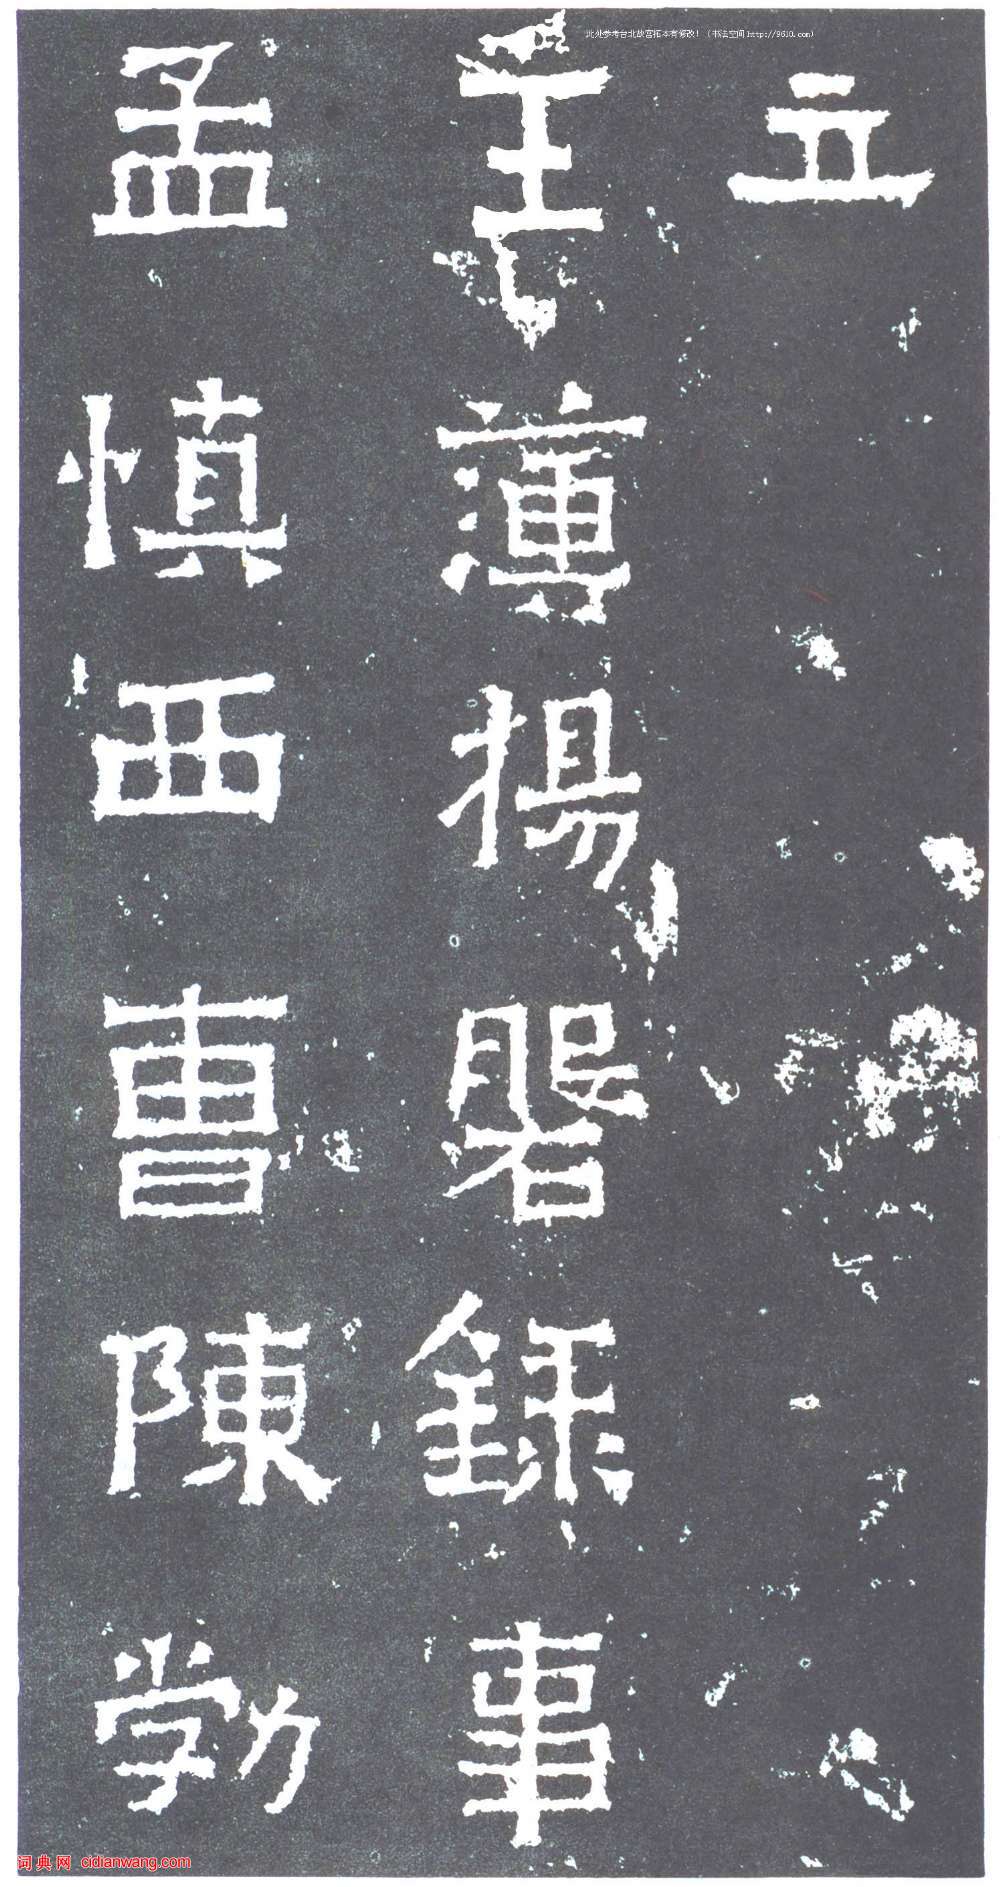 此处参考台北故宫拓本有修改！（书法空间http://9610.com）
立
主薄揚磐録事
孟慎西曹陳勃
词典网 cidianwang.com